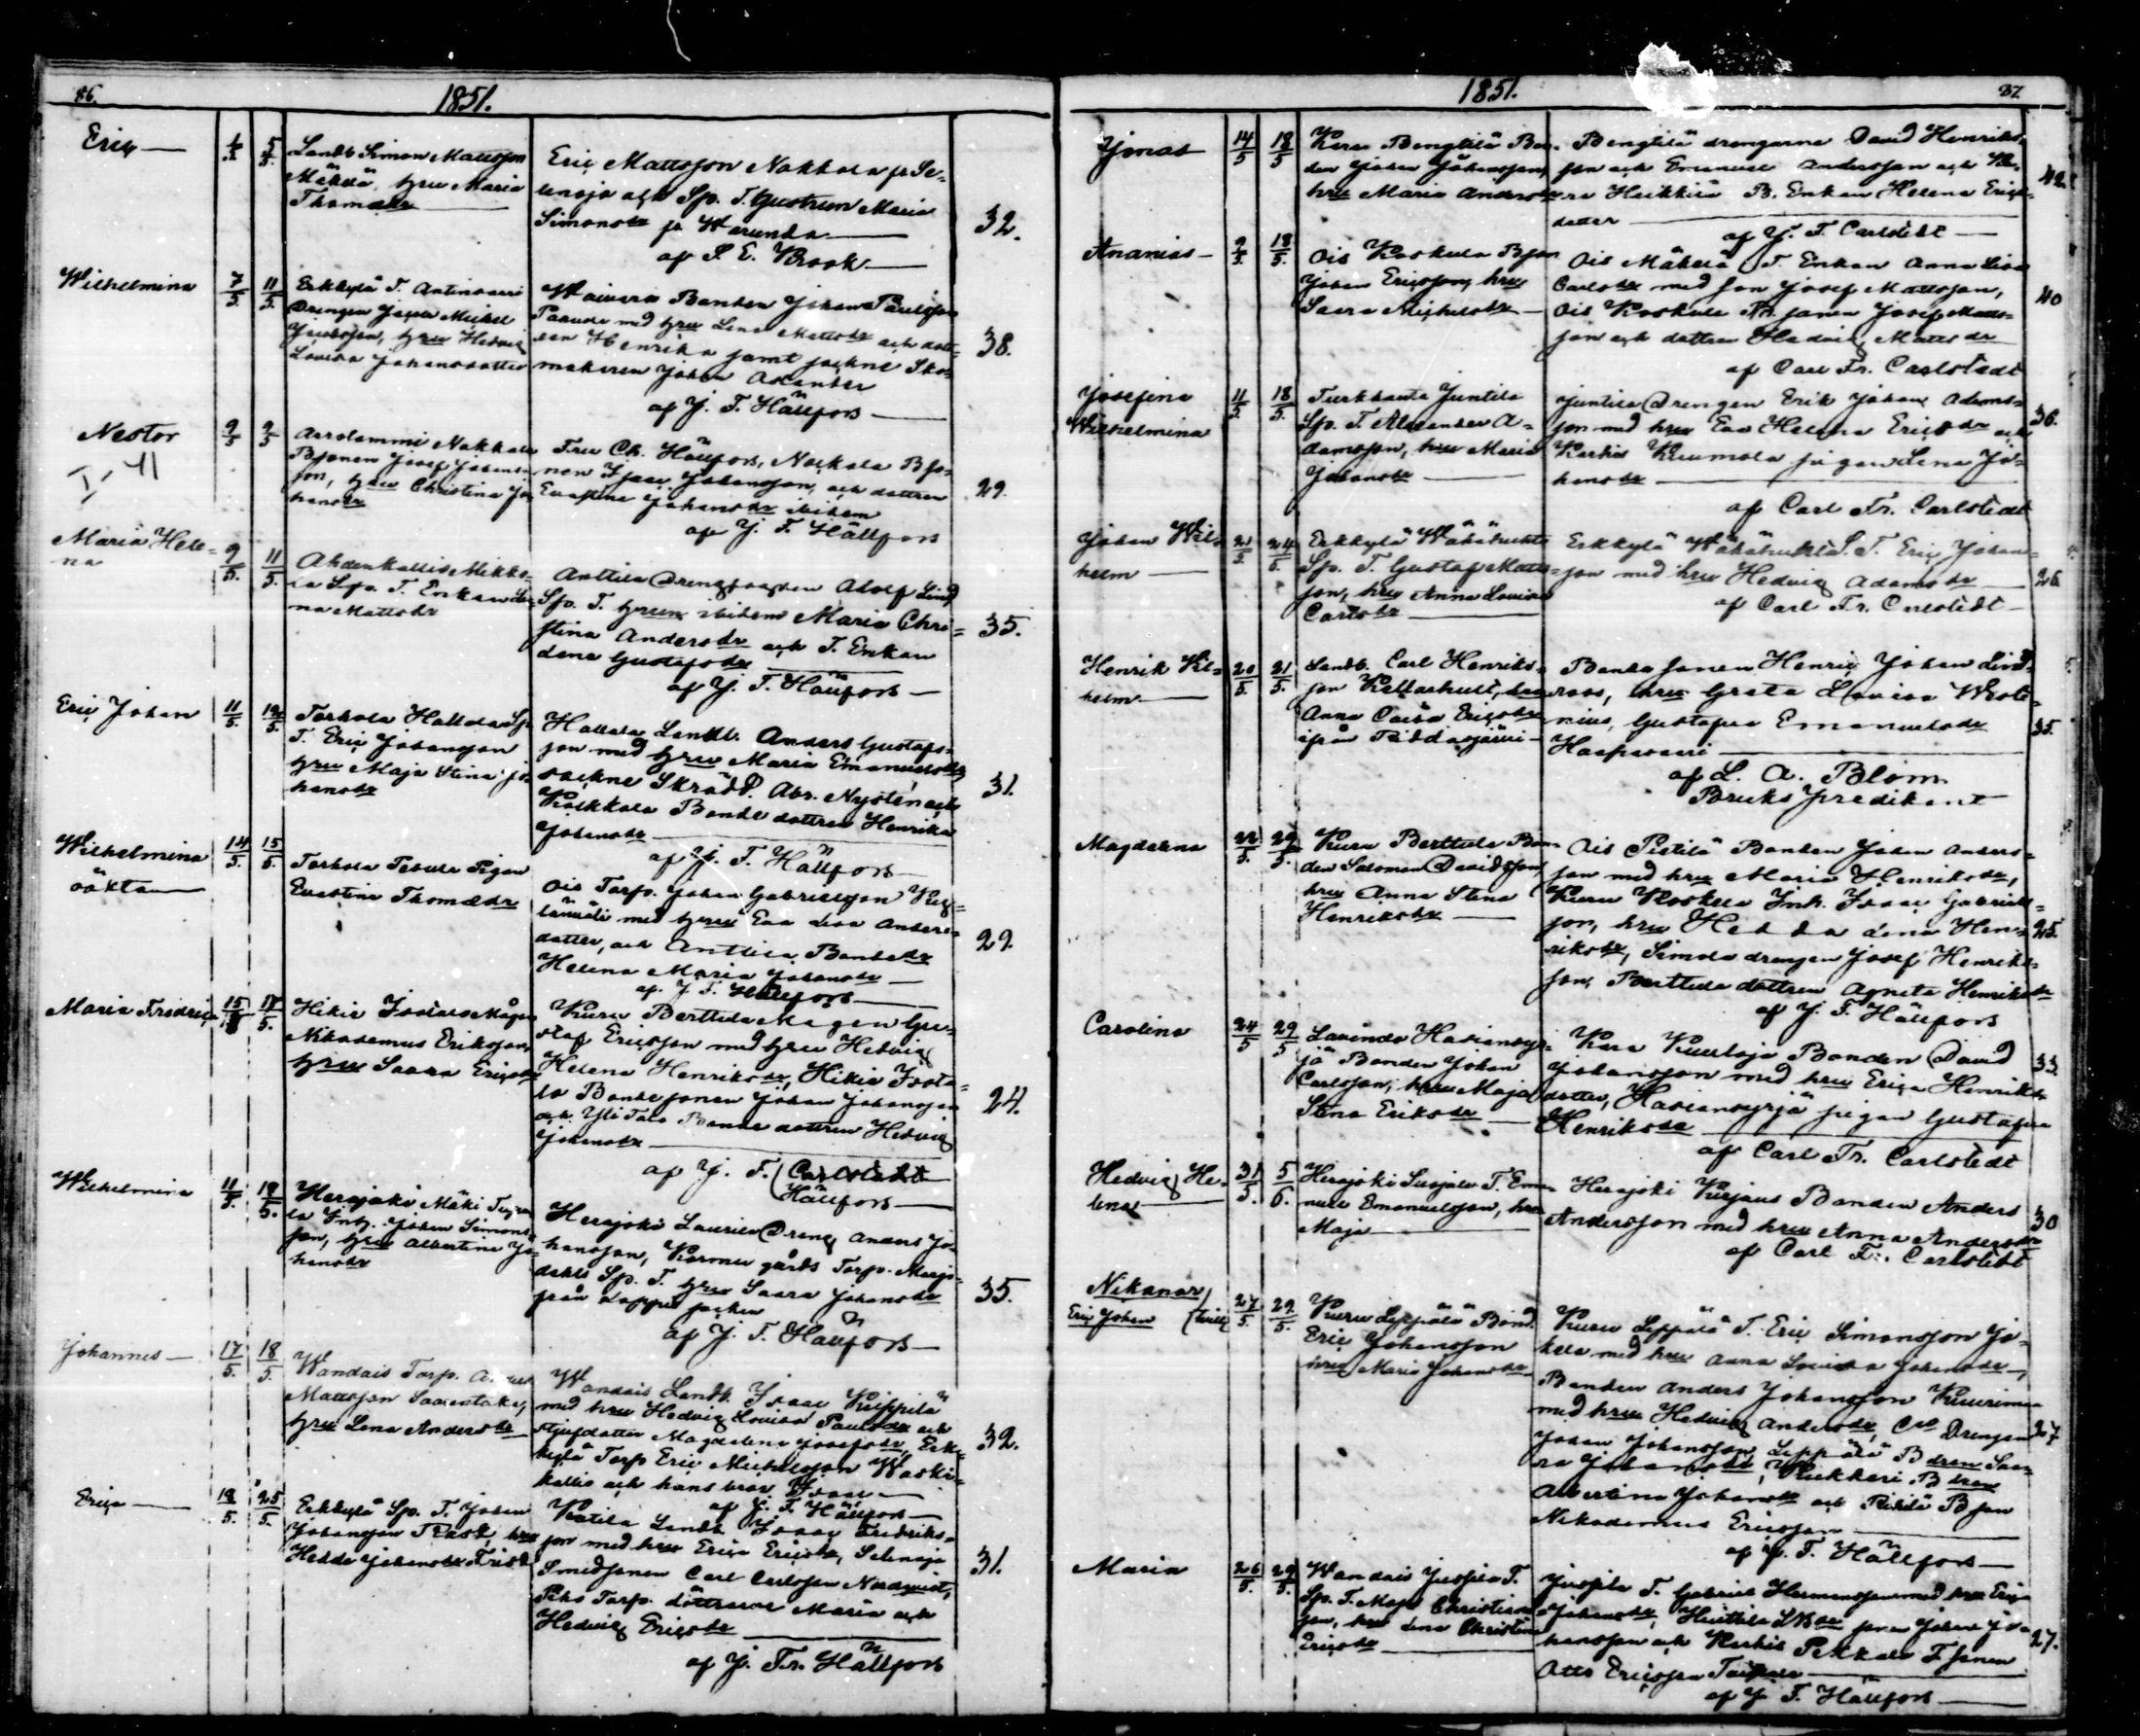 86.
1851.
Eric
4/5
5/5
Landb Simon Mattsson
Mäkelä, hru Maria
Thomædr
Eric Mattsson Nokkala fr Se-
lenoja och Sp. T. hustrun Maria
Simonsdr fr Warunda
af S. E. Brook
32.
Wilhelmina
7/5
11/5
Erkkylä T. Antinsaari
Drengen Jacob Michel
Jacobsson, hru Hedvig
Lovisa Johansdotter
Wainera Bonden Johan Paulsson
Paavde med hru Lena Mattsdr och dott-
ren Henrika samt sockne Sko-
makaren Johan Asander
af J. F. Hällfors
38.
Nestor
9/5
9/5
Arrolammi Nokkala
Bsonen Josef Johans
son, hru Christina Jo
hansdr
Fru Ch. Hällfors, Nockala Bso-
nen Isaac Johansson, och dottren
Evastina Johansdr ibidem
af J. F. Hällfors
29.
Maria Hele-
na
9/5
11/5
Ahdenkallio Mikko-
la Sp. T. Enkan Le
na Mattsdr
Anttila Drengfogden Adolf Lind
Sp. T. hrun ibidem Maria Chri-
stina Andersdr och T. Enkan
Lena Gustafsdr
af J. F. Hällfors
35.
Eric Johan
11/5
12/5
Torhola Hallola Sp
T. Eric Johansson
hru Maja Stina Jo
hansdr
Hallola Landb. Anders Gustafs-
son med hru Maria Emanuelsdr
sockne Skrädd. Abr. Nystén och
Koikkala Bonde dottren Henrika
Johansdr
af J. F. Hällfors
31.
Wilhelmina
oäkta
14/5
15/5
Torhola Pigan
Evastina Thomædr
Ois Torp. Johan Gabrielsson Kyl-
länääli med hru Eva Lisa Anders-
dotter, och Anttila Bondedr
Helena Maria Johansdr
af J. F. Hällfors
29.
Maria Fredrica
15/5
18/5
Hikiä Iso Mågen
Nikodemus Eriksson,
hru Saara Ericsdr
Kuru Berttula Magen Gu-
staf Ericsson med hru Hedvig
Helena Henriksdr, Hikiä Isota-
lo Bondesonen Johan Johansson
och Yli Talo Bonde dottren Hedvig
Johansdr
af J. F. Carlstedt
Hällfors
24.
Wilhelmina
11/5
18/5
Herajoki Mäki
la Inh. Johan Simons
son, hru Albertina Jo-
hansdr
Herajoki Laurila Dreng Anders Jo-
hansson, Kormu gårds Torp. Marjo-
dahls Sp. T. hru Saara Johansdr
från Loppis socken
af J. F. Hällfors
35.
Johannes
17/5
18/5
Wandais Torp. Anders
Mattsson Saarentaka,
hru Lena Andersdr
Wandais Landb. Isaac Keippilä
med hru Hedvig Lovisa Paulsdr och
stjufdotter Magdalena Josefsdr, Erk-
kylä Torp Eric Michelsson Waski-
kallio och hans bror Isaac
af J. F. Hällfors
32.
Erica
18/5
25/5
Erkkylä Sp. T. Johan
Johansson Frisk, hru
Hedda Johansdr Frisk
Katila Landb. Isaac Fredriks-
son med hru Erica Ericsdr, Selenoja
Smedsonen Carl Carlsson Nordqvist,
Torp. döttrarne Maria och
Hedvig Ericsdr
af J. Fr. Hällfors
31.
1851.
87.
Jonas
14/5
18/5
Kara Bengtilä Bon-
den Johan Johansson,
hru Maria Andersdr
Bengtilä drengarne David Henriks-
son och Emanuel Andersson och Ka-
ra Heikkilä B. Enkan Helena Erics-
dotter
af J. F. Carlstedt
42.
Ananias
9/5
18/5
Ois Koskela Bson
Johan Ericsson, hru
Saara Michelsdr
Ois Mäkelä T. Enkan Anna Lisa
Carlsdr med son Josef Mattsson,
Ois Koskela Bsonen Josef Matts-
son och dottren Hedvig Mattsdr
af Carl Fr. Carlstedt
40
Josefina
Wilhelmina
11/5
18/5
Turkhauta Juntila
Sp. T. Alexander A-
damsson, hru Maria
Johansdr
Juntila Drengen Erik Johan Adams-
son med hru Eva Helena Ericsdr och
Karhis Kuumola pigan Lena Jo-
hansdr
af Carl Fr. Carlstedt
36.
Johan Wil-
helm
21/5
24/5
Erkkylä Wähähuhti
Sp. T. Gustaf Matts-
son, hru Anna Lovisa
Carlsdr
Erkkylä Wähähuhti S. T. Eric Johan-
son med hru Hedvig Adamsdr
af Carl Fr. Carlstedt
26
Henrik Vil-
helm
20/5
21/5
Landb. Carl Henriks-
son Kettuhuht, hru
Anna Caisa Ericsdr
ifrån Piddasjärvi
Bonde sonen Henric Johan Lind-
roos, hru Greta Lovisa Weste-
nius, Gustafva Emanuelsdr
Haapasaari
af L. A. Blom
Bruks predikant
35.
Magdalena
22/5
29/5
Kuru Berttula Bon-
den Salomon Davidsson,
hru Anna Stina
Henriksdr
Ois Pietilä Bonden Johan Anders-
son med hru Maria Henriksdr,
Kuru Koskela Inh. Isaac Gabriels-
son, hru Hedda Lena Hen-
riksdr, Simola drengen Josef Henriks-
son, Berttula dottren Agneta Henriksdr
af J. F. Hällfors
25.
Carolina
24/5
29/5
Lavinda Hariansyr-
jä Bonden Johan
Carlsson, hru Maja
Stina Eriksdr
Kara Kuuloja Bonden David
Johansson med hru Erica Henriks-
dotter, Hariansyrjä pigan Gustafva
Henriksdr
af Carl Fr. Carlstedt
33.
Hedvig He-
lena
31/5
5/6
Herajoki Susjala T. Ema-
nuel Emanuelsson, hru
Maja
Herajoki Kirjaus Bonden Anders
Andersson med hru Anna Andersdr
af Carl Fr. Carlstedt
30
Nikanor
Eric Johan
tvill
27/5
29/5
Kuru Leppälä Bond.
Eric Johansson
hru Maria Johansdr
Kuru Leppälä T. Eric Simonsson Jo-
kela med hru Anna Lovisa Johansdr,
Bonden Anders Johansson Kuurinmaa
med hru Hedvig Andersdr, Drengen
Johan Johansson, Leppälä B dren Saa-
ra Johansdr, Kukkari B dren
Albertina Johansdr och Pietilä Bson
Nikodemus Ericsson
af J. F. Hällfors
27
Maria
26/5
29/5
Wandais Juspila T.
Sp. T. Maja Christians
son, hru Lena Christina
Ericsdr
Juspila T. Gabriel Hermansson med hru Erica
Johansdr, Huittila sonen Johan Jo-
hansson och Karhis Pekkala T sonen
Otto Ericsson
af J. F. Hällfors
27.